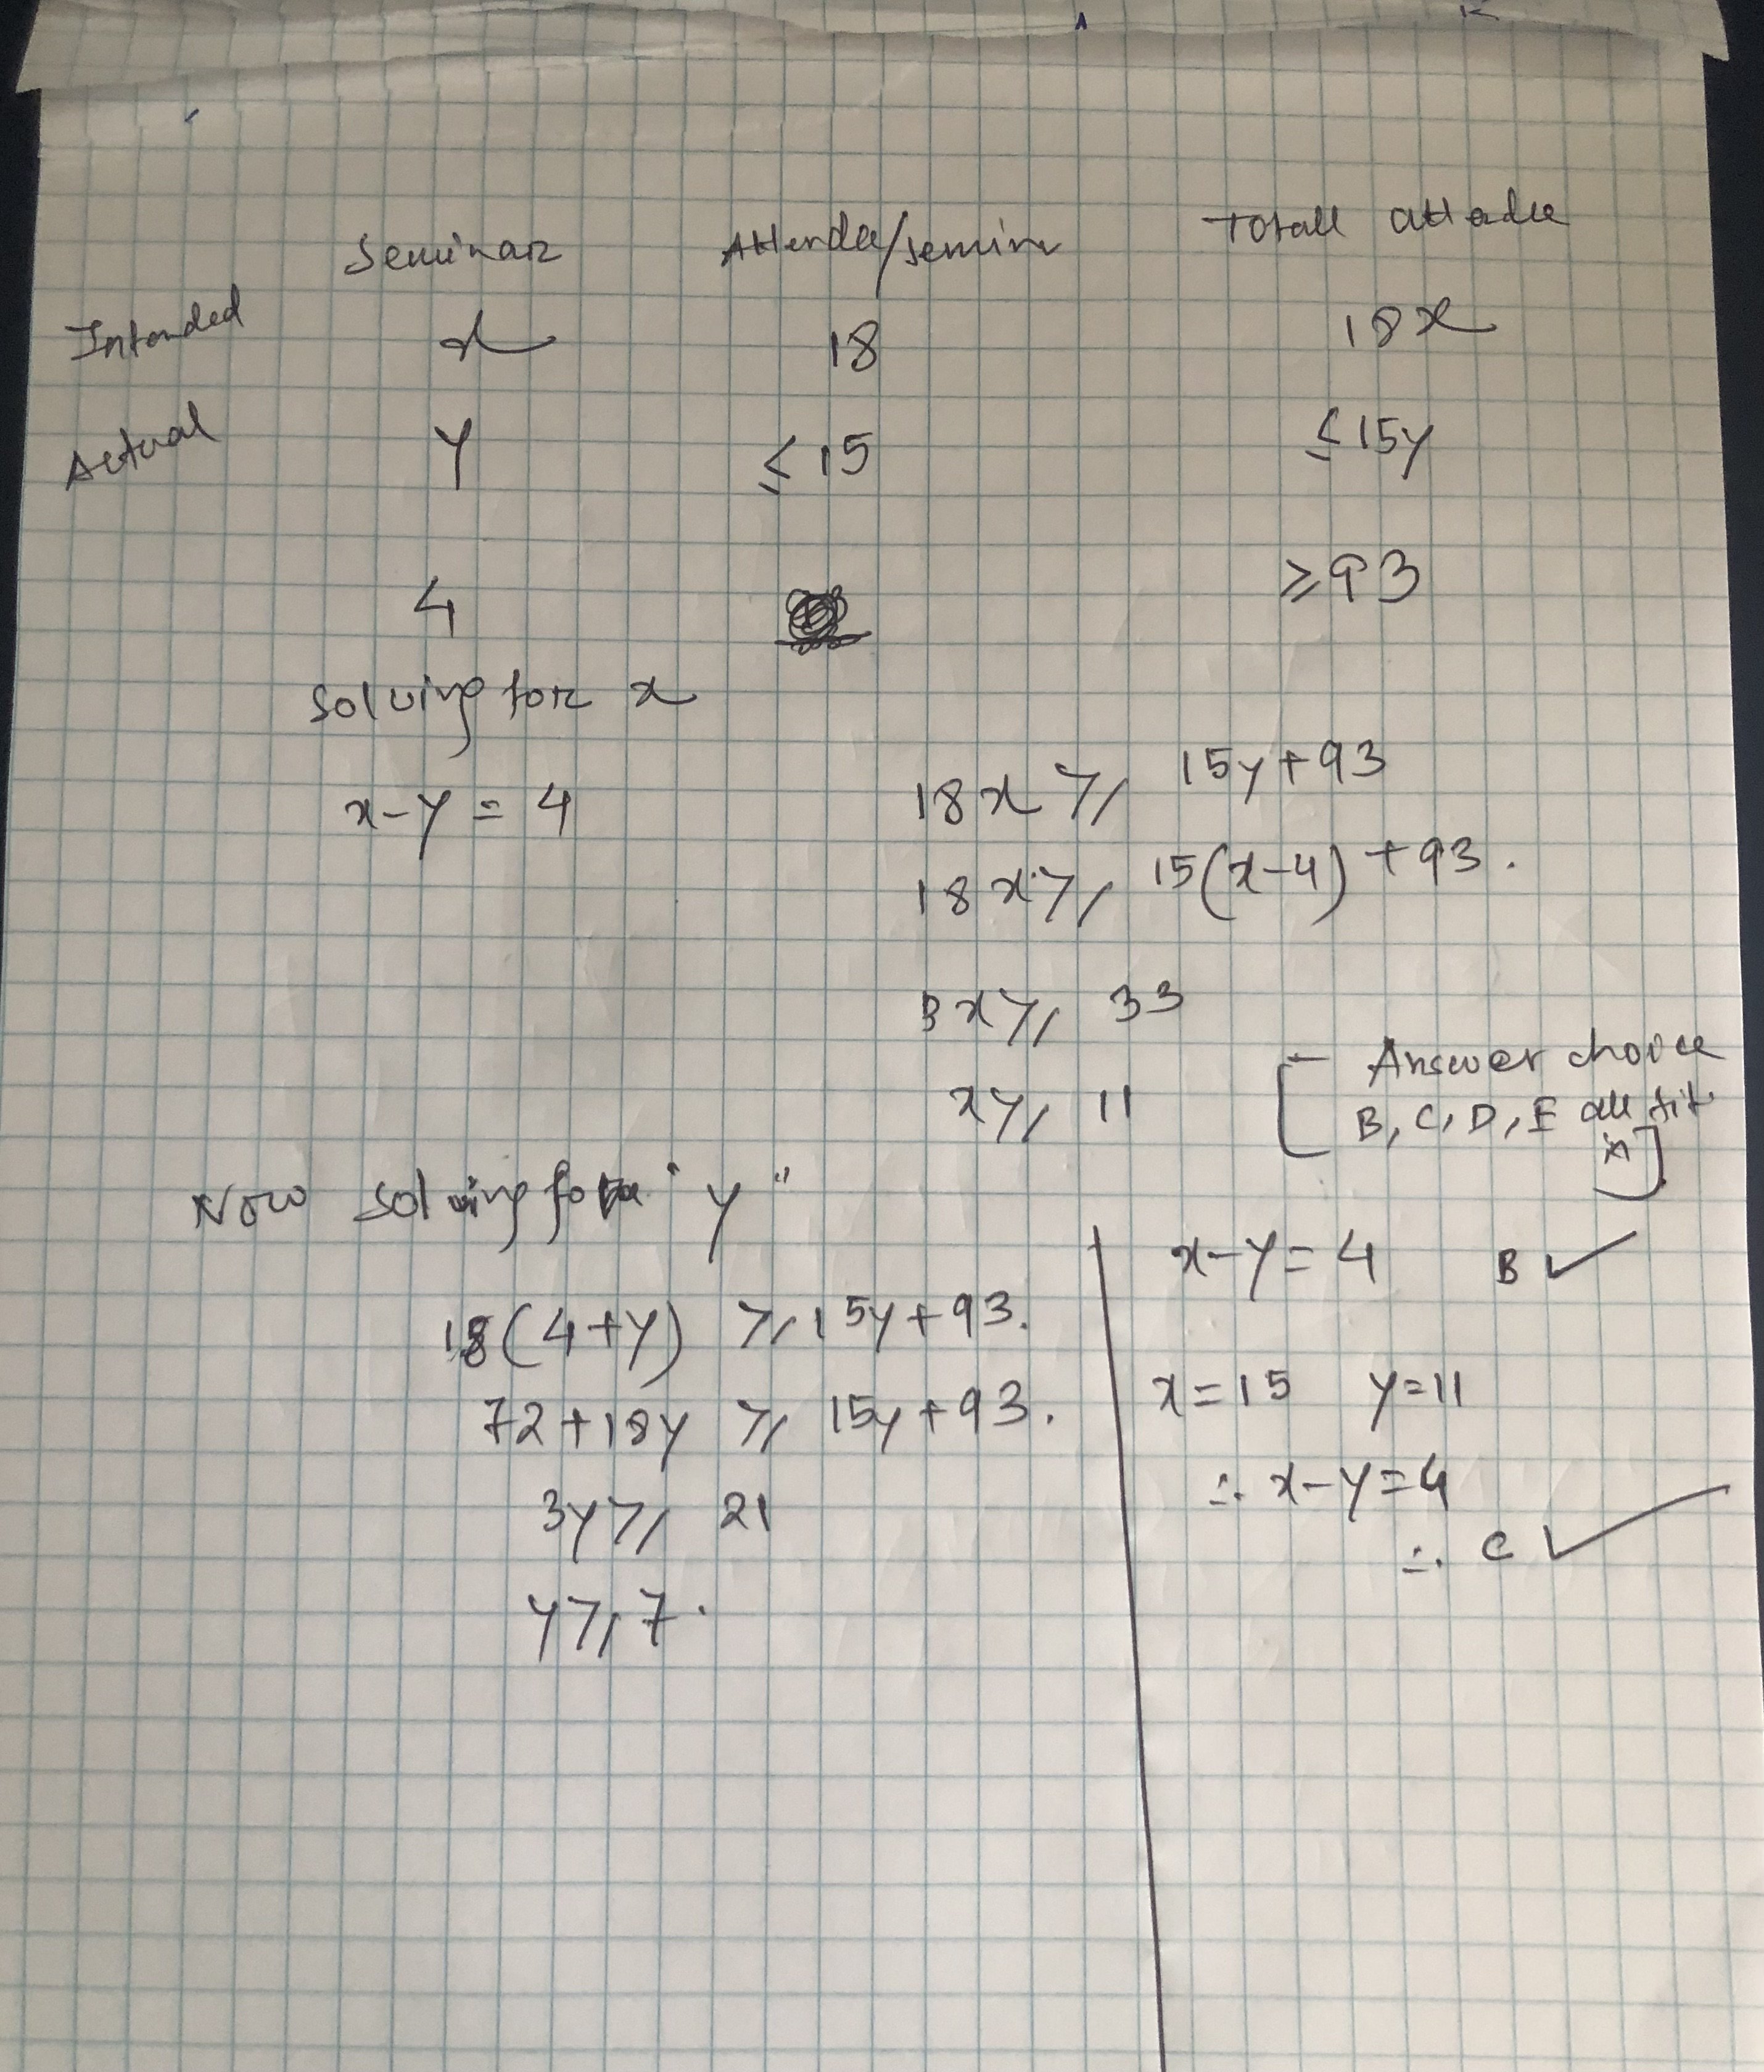 Seminar Attendee/semina Totall attadee
Intended x 18 18x
Actual y ≤ 15 ≤ 15y
4 ≥ 93
Solving for x
x-y = 4 18x ≥ 15y+93
18x ≥ 15(x-4) + 93.
3x ≥ 33
x ≥ 11
[- Answer choice
B, C, D, E all fit
in]
Now solving for "y"
18(4+y) ≥ 15y+93.
72+18y ≥ 15y+93.
3y ≥ 21
y ≥ 7.
x-y=4 B ✓
x=15 y=11
∴ x-y=4
∴ C ✓